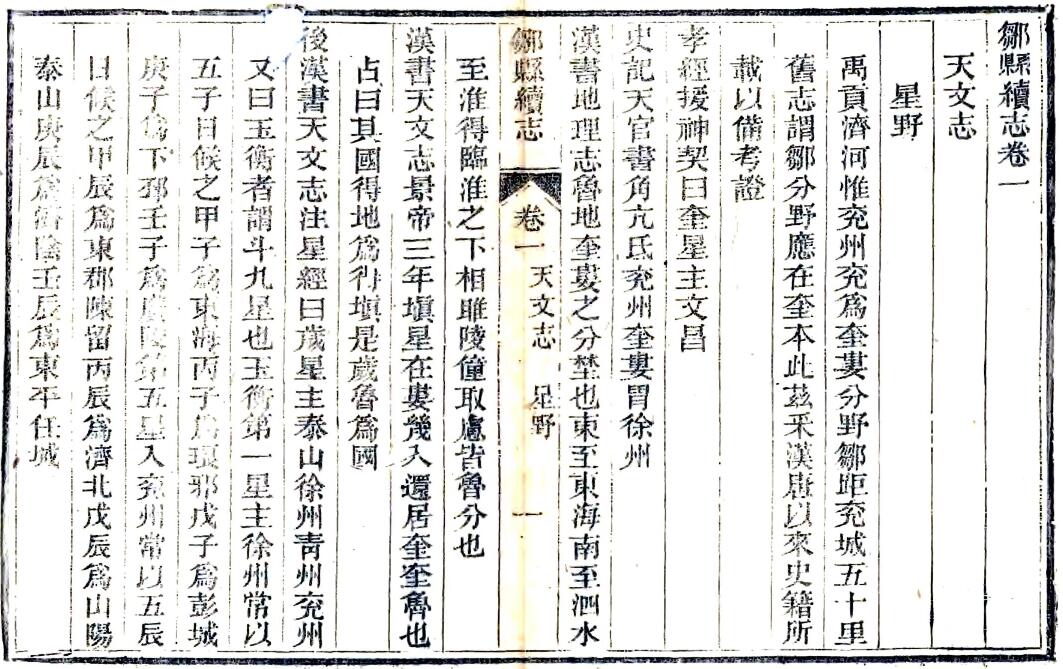 鄒縣續志卷一
天文志
星野
禹貢濟河惟兖州兖爲奎婁分野鄒距兖城五十里
舊志謂鄒分野應在奎本此茲采漢唐以來史籍所
載以備考證
孝經援神契曰奎星主文昌
史記天官書角亢氐兖州奎婁胃徐州
漢書地理志魯地奎婁之分壄也東至東海南至泗水
鄒縣續志 卷一 天文志 星野 一
至淮得臨淮之下相睢陵僮取慮皆魯分也
漢書天文志景帝三年塡星在婁幾入還居奎奎魯也
占曰其國得地爲得塡是歲魯爲國
後漢書天文志注星經曰歲星主泰山徐州靑州兖州
又曰玉衡者謂斗九星也玉衡第一星主徐州常以
五子日候之甲子爲東海丙子爲琅邪戊子爲彭城
庚子爲下邳壬子爲廣陵第五星入兖州常以五辰
日候之甲辰爲東郡陳留丙辰爲濟北戊辰爲山陽
泰山庚辰爲濟陰壬辰爲東平任城